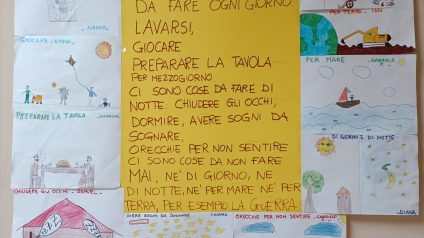 DA FARE OGNI GIORNO:
LAVARSI,
GIOCARE
PREPARARE LA TAVOLA
PER MEZZOGIORNO
CI SONO COSE DA FARE DI
NOTTE: CHIUDERE GLI OCCHI,
DORMIRE, AVERE SOGNI DA
SOGNARE,
ORECCHIE PER NON SENTIRE
CI SONO COSE DA NON FARE
MAI, NE' DI GIORNO, NE'
DI NOTTE, NE' PER MARE NE' PER
TERRA, PER ESEMPIO LA GUERRA.
GIOCARE - EMMA
PREPARARE LA TAVOLA
CHIUDERE GLI OCCHI -
AVERE SOGNI DA SOGNARE
ORECCHIE PER NON SENTIRE
PER TERRA - IAN
PER MARE
DI GIORNO E DI NOTTE
DIANA